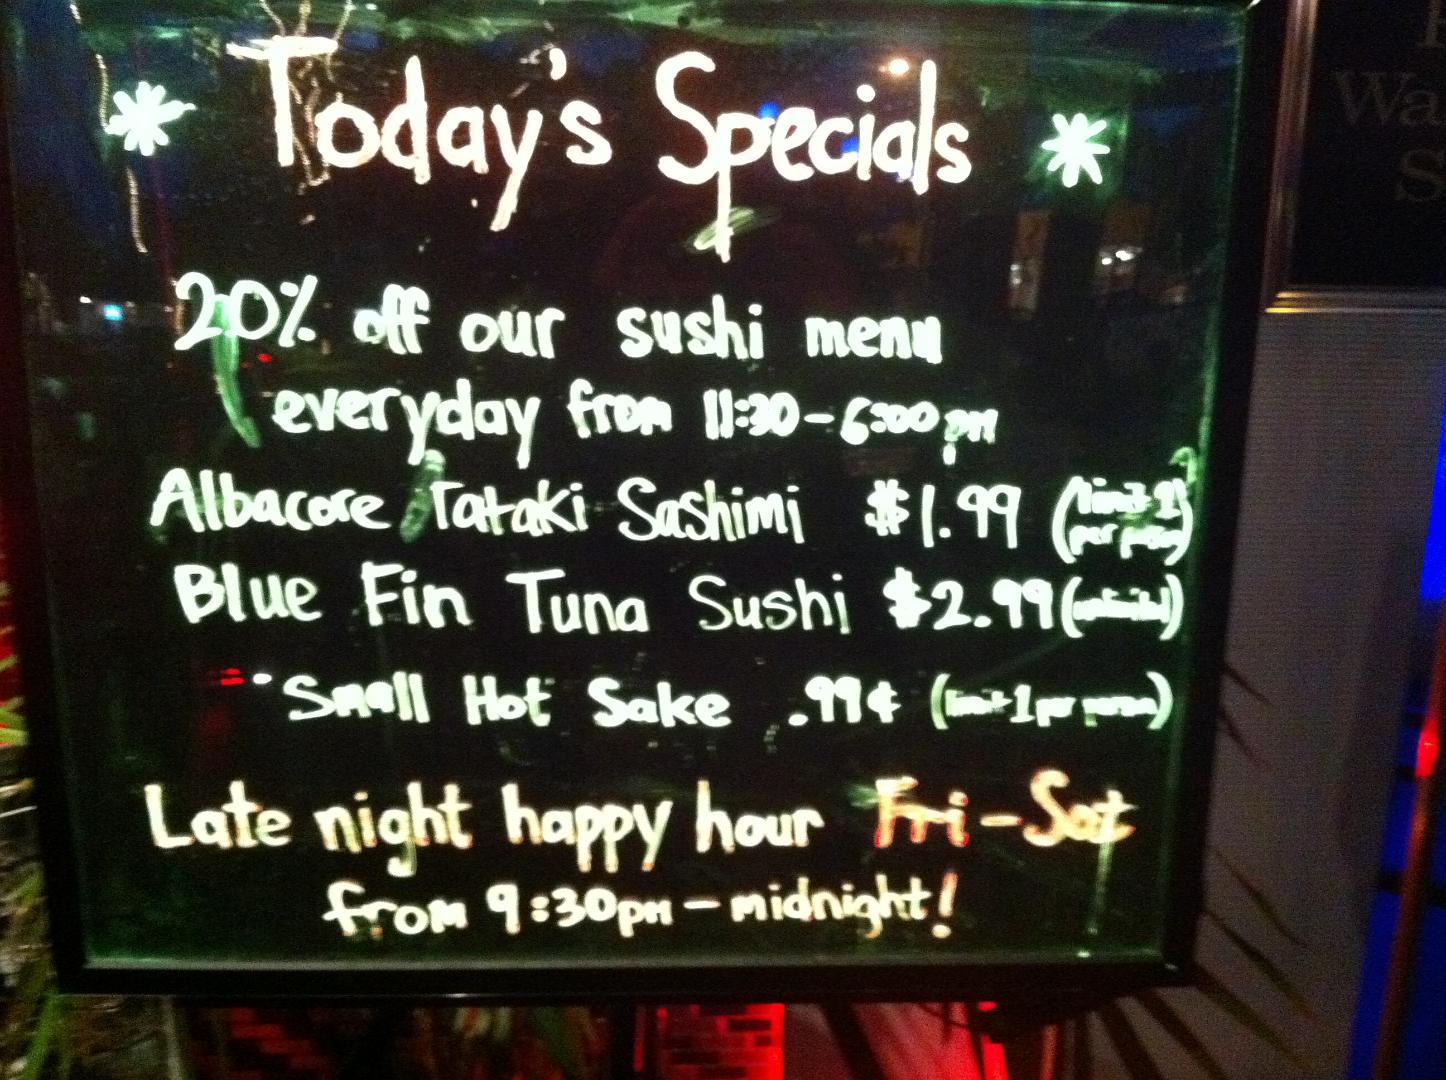 * Today's Specials *
20% off our sushi menu
everyday from 11:30 - 6:00pm
Albacore Tataki Sashimi $1.99 (limit 1 per person)
Blue Fin Tuna Sushi $2.99 (unlimited)
Small Hot Sake .99¢ (limit 1 per person)
Late night happy hour Fri - Sat
from 9:30pm - midnight!
Wa
S